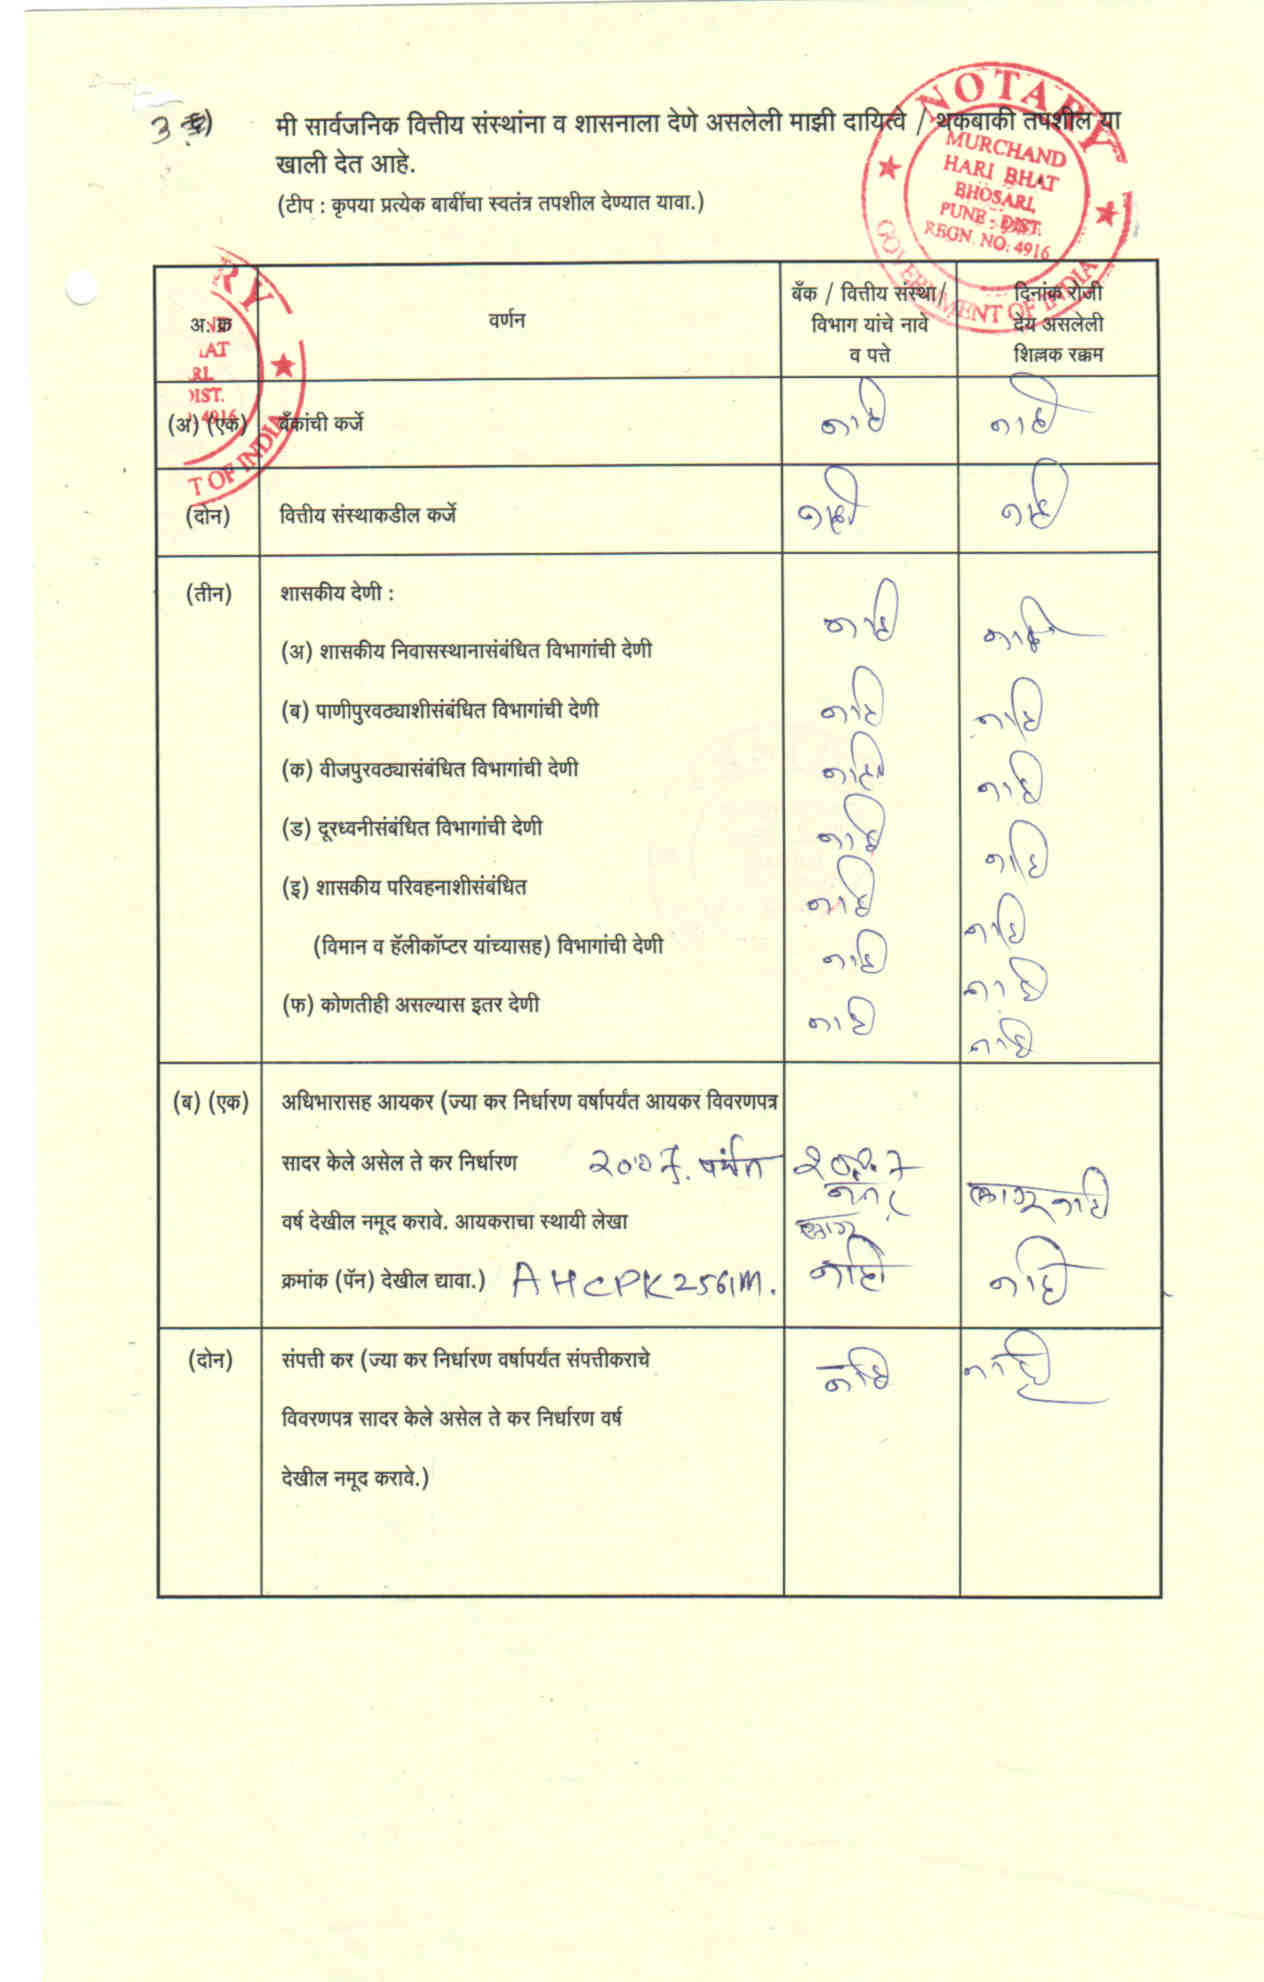 3)
मी सार्वजनिक वित्तीय संस्थांना व शासनाला देणे असलेली माझी दायित्वे / थकबाकी तपशील या
खाली देत आहे.
(टीप : कृपया प्रत्येक बाबींचा स्वतंत्र तपशील देण्यात यावा.)
NOTARY
MURCHAND
HARI BHAT
BHOSARI,
PUNE - DIST.
REGN. NO. 4916
GOVERNMENT OF INDIA
RY
LAT
RI,
DIST.
4916
T OF INDIA
अ.क्र वर्णन बँक / वित्तीय संस्था/ दिनांक रोजी
विभाग यांचे नावे देय असलेली
व पत्ते शिल्लक रक्कम
(अ) (एक) बँकांची कर्जे नाही नाही
(दोन) वित्तीय संस्थाकडील कर्जे नाही नाही
(तीन) शासकीय देणी : नाही नाही
(अ) शासकीय निवासस्थानासंबंधित विभागांची देणी
(ब) पाणीपुरवठ्याशीसंबंधित विभागांची देणी नाही नाही
(क) वीजपुरवठ्यासंबंधित विभागांची देणी नाही नाही
(ड) दूरध्वनीसंबंधित विभागांची देणी नाही नाही
(इ) शासकीय परिवहनाशीसंबंधित नाही नाही
(विमान व हॅलीकॉप्टर यांच्यासह) विभागांची देणी नाही नाही
(फ) कोणतीही असल्यास इतर देणी नाही नाही
(ब) (एक) अधिभारासह आयकर (ज्या कर निर्धारण वर्षापर्यंत आयकर विवरणपत्र
सादर केले असेल ते कर निर्धारण २००७. पर्यंत २००७
नंतर लागू नाही
वर्ष देखील नमूद करावे. आयकराचा स्थायी लेखा लागू
क्रमांक (पॅन) देखील द्यावा.) AHCPK2561M. नाही नाही
(दोन) संपत्ती कर (ज्या कर निर्धारण वर्षापर्यंत संपत्तीकराचे नाही नाही
विवरणपत्र सादर केले असेल ते कर निर्धारण वर्ष
देखील नमूद करावे.)